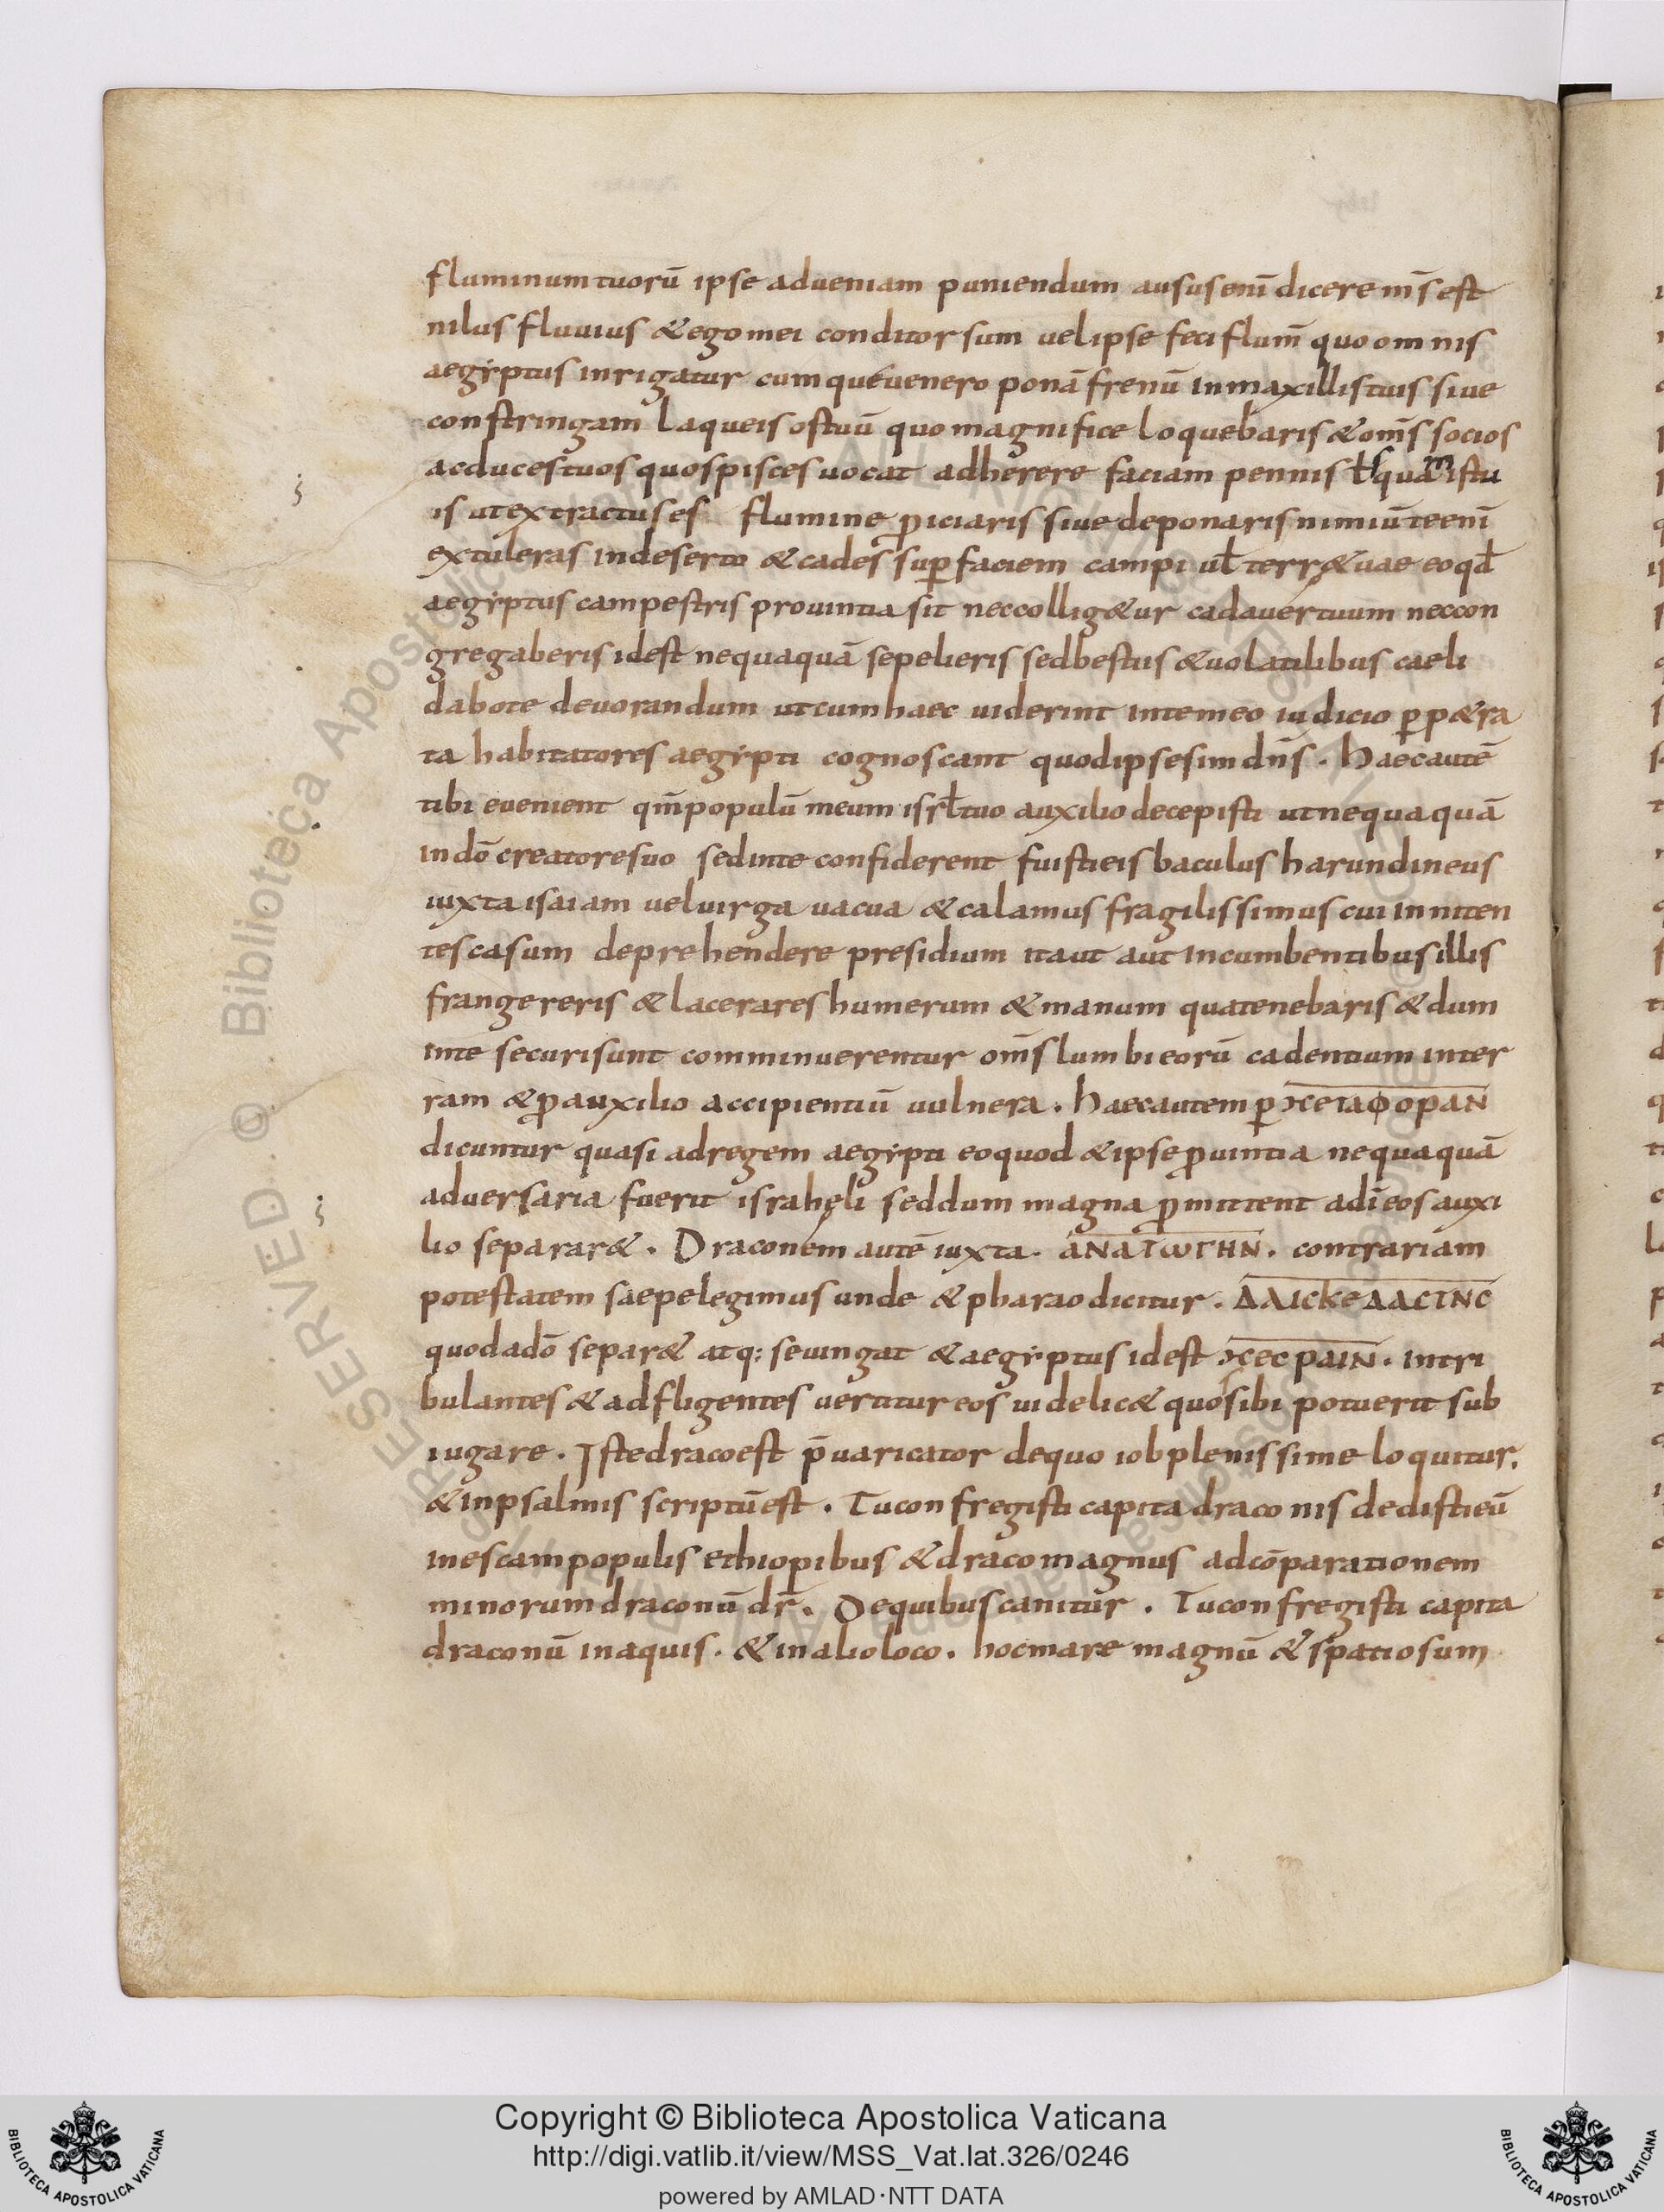 fluminum tuorū ipse adueniam puniendum ausus enī dicere m̄s est
nilus fluuius & ego mei conditor sum uel ipse feci flum̄ quo omnis
aegẏptus inrigatur cumque uenero ponā frenū in maxillis tuis siue
constringam laqueis os tuū quo magnifice loquebaris & om̄s socios
ac duces tuos quos pisces uocat adherere faciam pennis ł squamis tu
is ut extractus es flumine ꝓiciaris siue deponaris nimiū te enī
extuleras in deserto & cades sup̱ faciem campi ul̄ terr& uae eo qđ
aegẏptus campestris prouintia sit nec collig&ur cadauer tuum nec con
gregaberis id est nequaquā sepelieris sed bestiis & uolatilibus caeli
dabo te deuorandum ut cum haec uiderint in te meo iudicio p̱p&ra
ta habitatores aegẏpti cognoscant quod ipse sim dn̄s . Haec autē
tibi euenient qm̄ populū meum isrł tuo auxilio decepisti ut nequaquā
in dō creatore suo sed in te confiderent fuisti eis baculus harundineus
iuxta isaiam uel uirga uacua & calamus fragilissimus cui inniten
tes casum deprehendere presidium ita ut aut incumbentibus illis
frangereris & lacerares humerum & manum qua tenebaris & dum
in te securi sunt comminuerentur om̄s lumbi eorū cadentium in ter
ram & ꝓ auxilio accipientiū uulnera . Haec autem p̱ ϽϹΕΤΑΦΟΡΑΝ
dicuntur quasi ad regem aegẏpti eo quod & ipse ꝓuintia nequaquā
aduersaria fuerit israhęli sed dum magna ꝓmittent a dī eos auxi
lio separar& . Draconem autē iuxta . ΑΝΑΤΩΓΗΝ . contrariam
potestatem saepe legimus unde & pharao dicitur . ΔΛΙCΚΕΔΑCΤΝC
quod a dō separ& atq: seuingat & aegẏptus id est ϽϹΕCΡΑΙΝ . in tri
bulantes & adfligentes uertitur eos uidelic& quos sibi potuerit sub
iugare . Iste draco est p̄uaricator de quo iob plenissime loquitur.
& in psalmis scriptū est . Tu confregisti capita draconis dedisti eū
in escam populis ethiopibus & draco magnus ad cōparationem
minorum draconū dr̄ . De quibus canitur . Tu confregisti capita
draconū in aquis . & in alio loco . hoc mare magnū & spatiosum
Copyright © Biblioteca Apostolica Vaticana
http://digi.vatlib.it/view/MSS_Vat.lat.326/0246
powered by AMLAD·NTT DATA
BIBLIOTECA APOSTOLICA VATICANA
BIBLIOTECA APOSTOLICA VATICANA